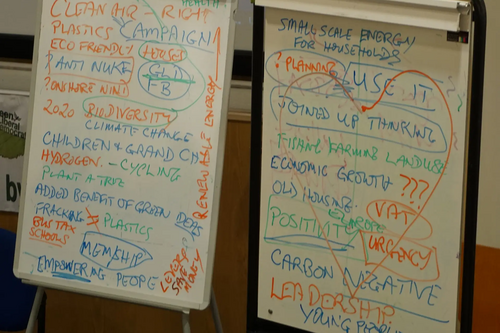 HEALTH
CLEAN AIR - RIGHT
PLASTICS CAMPAIGN
ECO FRIENDLY HOUSES
? ANTI NUKE GLD
? ONSHORE WIND FB
2020 BIODIVERSITY
CLIMATE CHANGE
CHILDREN & GRAND CH
HYDROGEN. - CYCLING
PLANT A TREE
ADDED BENEFIT OF GREEN JOBS
FRACKING PLASTICS
BUS TAX
SCHOOLS
MEMSHIP
EMPOWERING PEOPLE
RENEWABLE ENERGY
SAVE MONEY
SMALL SCALE ENERGY
FOR HOUSEHOLDS
? PLANNING USE IT
JOINED UP THINKING
FISHING FARMING LANDUSE
ECONOMIC GROWTH ???
OLD HOUSING. VAT
POSITIVITY EUROPE
URGENCY
CARBON NEGATIVE
LEADERSHIP
YOUNG PEOPLE
by